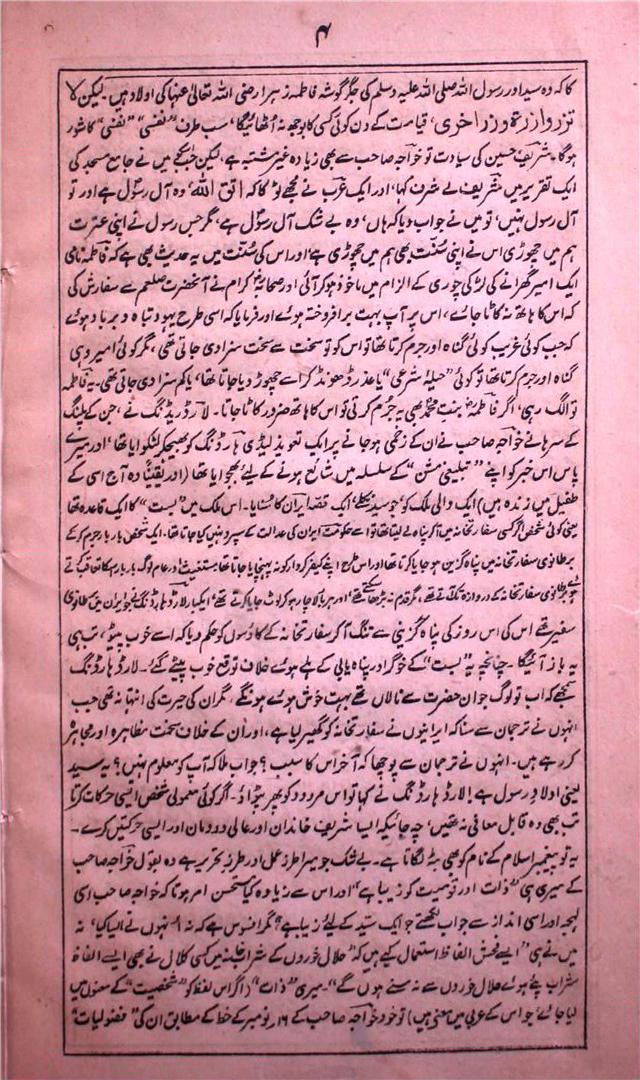 ۴
کا کہ وہ سید اور رسول اللہ صلی اللہ علیہ وسلم کی جگر گوشہ فاطمہ زہرا رضی اللہ تعالیٰ عنہا کی اولاد ہیں۔ لیکن لا
تزر وازرة وزر اخری، قیامت کے دن کوئی کسی کا بوجھ نہ اُٹھائیگا، سب طرف "نفسی" "نفسی" کا شور
ہوگا۔ شریف حسین کی سیادت تو خواجہ صاحب سے بھی زیادہ غیر مشتبہ ہے، لیکن جب مکے میں نے جامع مسجد کی
ایک تقریر میں شریف بے شرف کہا، اور ایک عرب نے مجھے لوٹ کا کہ اتق اللہ، وہ آل رسول ہے اور تو
آل رسول نہیں، تو میں نے جواب دیا کہ ہاں، وہ بے شک آل رسول ہے، مگر جس رسول نے اپنی عترت
ہم میں چھوڑی اس نے اپنی سنت بھی ہم میں چھوڑی ہے، اور اس کی سنت میں یہ حدیث بھی ہے کہ فاطمہ نامی
ایک امیر گھرانے کی لڑکی چوری کے الزام میں ماخوذ ہو کر آئی اور صحابہ کرام نے آنحضرت صلعم سے سفارش کی
کہ اس کا ہاتھ نہ کاٹا جائے، اس پر آپ بہت برافروختہ ہوئے اور فرمایا کہ اسی طرح یہود تباہ و برباد ہوئے
کہ جب کوئی غریب کوئی گناہ اور جرم کرتا تھا تو اس کو تو سخت سے سخت سزا دی جاتی تھی، مگر کوئی امیر وہی
گناہ اور جرم کرتا تھا تو کوئی "حیلۂ شرعی" یا عذر ڈھونڈ کر اسے چھوڑ دیا جاتا تھا، یا کم سزا دی جاتی تھی۔ یہ فاطمہ
تو الگ رہی، اگر فاطمہ بنت محمد بھی یہ جرم کرتی تو اس کا ہاتھ ضرور کاٹا جاتا۔ لارڈ ریڈنگ نے، جن کے پلنگ
کے سرہانے خواجہ صاحب نے ان کے زخمی ہو جانے پر ایک تعویذ لیڈی ہارڈنگ کو بھیجکر لٹکوایا تھا، اور میرے
پاس اس خبر کو اپنے "تبلیغی مشن" کے سلسلہ میں شائع ہونے کے لیئے بھجوایا تھا (اور یقیناً وہ آج اسی کے
طفیل میں زندہ ہیں) ایک والی ملک کو، جو سید تھے، ایک قصہ ایران کا سنایا۔ اس ملک میں "بست" کا ایک قاعدہ تھا
یعنی کوئی شخص اگر کسی سفارتخانہ میں آکر پناہ لے لیتا تھا تو اسے حکومت ایران کی عدالت کے سپرد نہیں کیا جاتا تھا۔ ایک شخص بار بار جرم کر کے
برطانوی سفارتخانہ میں پناہ گزین ہو جایا کرتا تھا اور اس طرح اپنے کیفر کردار کو نہ پہنچایا جاتا تھا مستغیث اور عام لوگ بار بار اسکا تعاقب کرتے
ہوئے برطانوی سفارتخانہ کے دروازہ تک آتے تھے، مگر قدم نہ بڑھا سکتے تھے اور ہر بار لاچار ہو کر لوٹ جایا کرتے تھے، ایکبار لارڈ ہارڈنگ نے جو ایران میں برطانوی
سفیر تھے اس کی اس روز کی پناہ گزینی سے تنگ آ کر سفارتخانہ کے گارڈوں کو حکم دیا کہ اسے خوب پیٹو، تب ہی
یہ باز آئیگا۔ چنانچہ یہ "بست" کے خوگر اور پناہ یابی کے ہلے ہوئے خلاف توقع خوب پیٹے گئے۔ لارڈ ہارڈنگ
سمجھے کہ اب تو لوگ جو ان حضرت سے نالاں تھے بہت خوش ہوئے ہونگے، مگر ان کی حیرت کی انتہا نہ تھی جب
انہوں نے ترجمان سے سنا کہ ایرانیوں نے سفارتخانہ کو گھیر لیا ہے، اور ان کے خلاف سخت مظاہرہ اور مجاہرہ
کر رہے ہیں۔ انہوں نے ترجمان سے پوچھا کہ آخر اس کا سبب؟ جواب ملا کہ آپ کو معلوم نہیں؟ یہ سید
یعنی اولاد رسول ہے! لارڈ ہارڈنگ نے کہا تو اس مردود کو پھر پٹواؤ۔ اگر کوئی معمولی شخص ایسی حرکات کرتا
تب بھی وہ قابل معافی نہ تھیں، چہ جائیکہ ایسا شریف خاندان اور عالی دودمان اور ایسی حرکتیں کرے۔
یہ تو پیغمبر اسلام کے نام کو بھی بٹہ لگاتا ہے۔ بے شک جو میرا طرز عمل اور طرز تحریر ہے وہ بقول خواجہ صاحب
کے میری ہی "ذات اور قومیت کو زیبا ہے" اور اس سے زیادہ کیا مستحسن امر ہوتا کہ خواجہ صاحب اسی
لہجہ اور اسی انداز سے جواب لکھتے جو ایک سید کے لیئے زیبا ہے؟ مگر افسوس ہے کہ نہ انہوں نے ایسا کیا، نہ
میں نے ہی "ایسے فحش الفاظ استعمال کیے ہیں کہ "حلال خوروں کے شرابخانہ میں کسی کلال نے بھی ایسے الفاظ
شراب پیئے ہوئے حلال خوروں سے نہ سنے ہوں گے"۔ میری "ذات" (اگر اس لفظ کو "شخصیت" کے معنوں میں
لیا جائے جو اس کے عربی میں معنی ہیں) تو خود خواجہ صاحب کے ۱۶ نومبر کے خط کے مطابق ان کی "فضولیات"